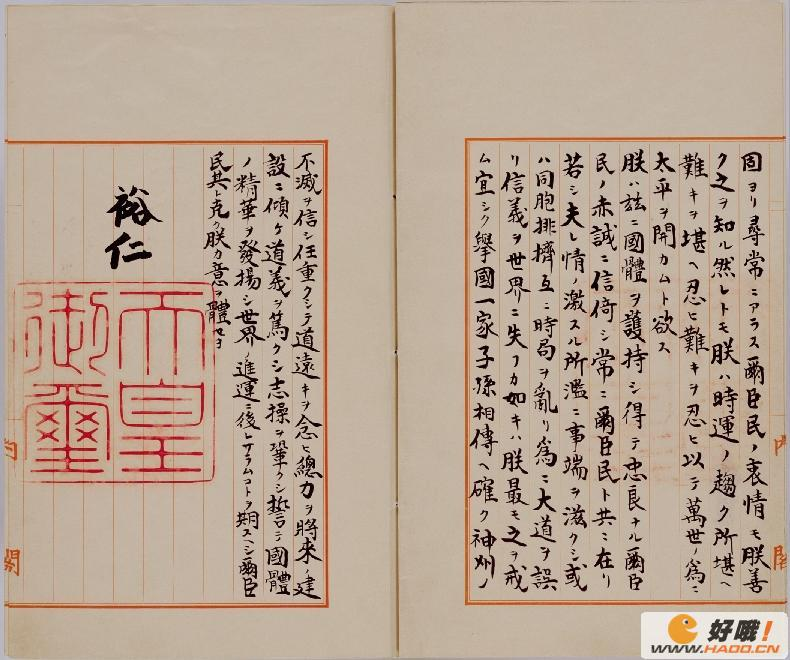 固ヨリ尋常ニアラス爾臣民ノ衷情モ朕善
ク之ヲ知ル然レトモ朕ハ時運ノ趨ク所堪ヘ
難キヲ堪ヘ忍ヒ難キヲ忍ヒ以テ萬世ノ爲ニ
太平ヲ開カムト欲ス
朕ハ茲ニ國體ヲ護持シ得テ忠良ナル爾臣
民ノ赤誠ニ信倚シ常ニ爾臣民ト共ニ在リ
若シ夫レ情ノ激スル所濫ニ事端ヲ滋クシ或
ハ同胞排擠互ニ時局ヲ亂リ爲ニ大道ヲ誤
リ信義ヲ世界ニ失フカ如キハ朕最モ之ヲ戒
ム宜シク擧國一家子孫相傳ヘ確ク神州ノ
不滅ヲ信シ任重クシテ道遠キヲ念ヒ總力ヲ將來ノ建
設ニ傾ケ道義ヲ篤クシ志操ヲ鞏クシ誓テ國體
ノ精華ヲ發揚シ世界ノ進運ニ後レサラムコトヲ期スヘシ爾臣
民其レ克ク朕カ意ヲ體セヨ
裕仁
天皇
御璽
内閣
内閣
好哦!
WWW.HAOO.CN